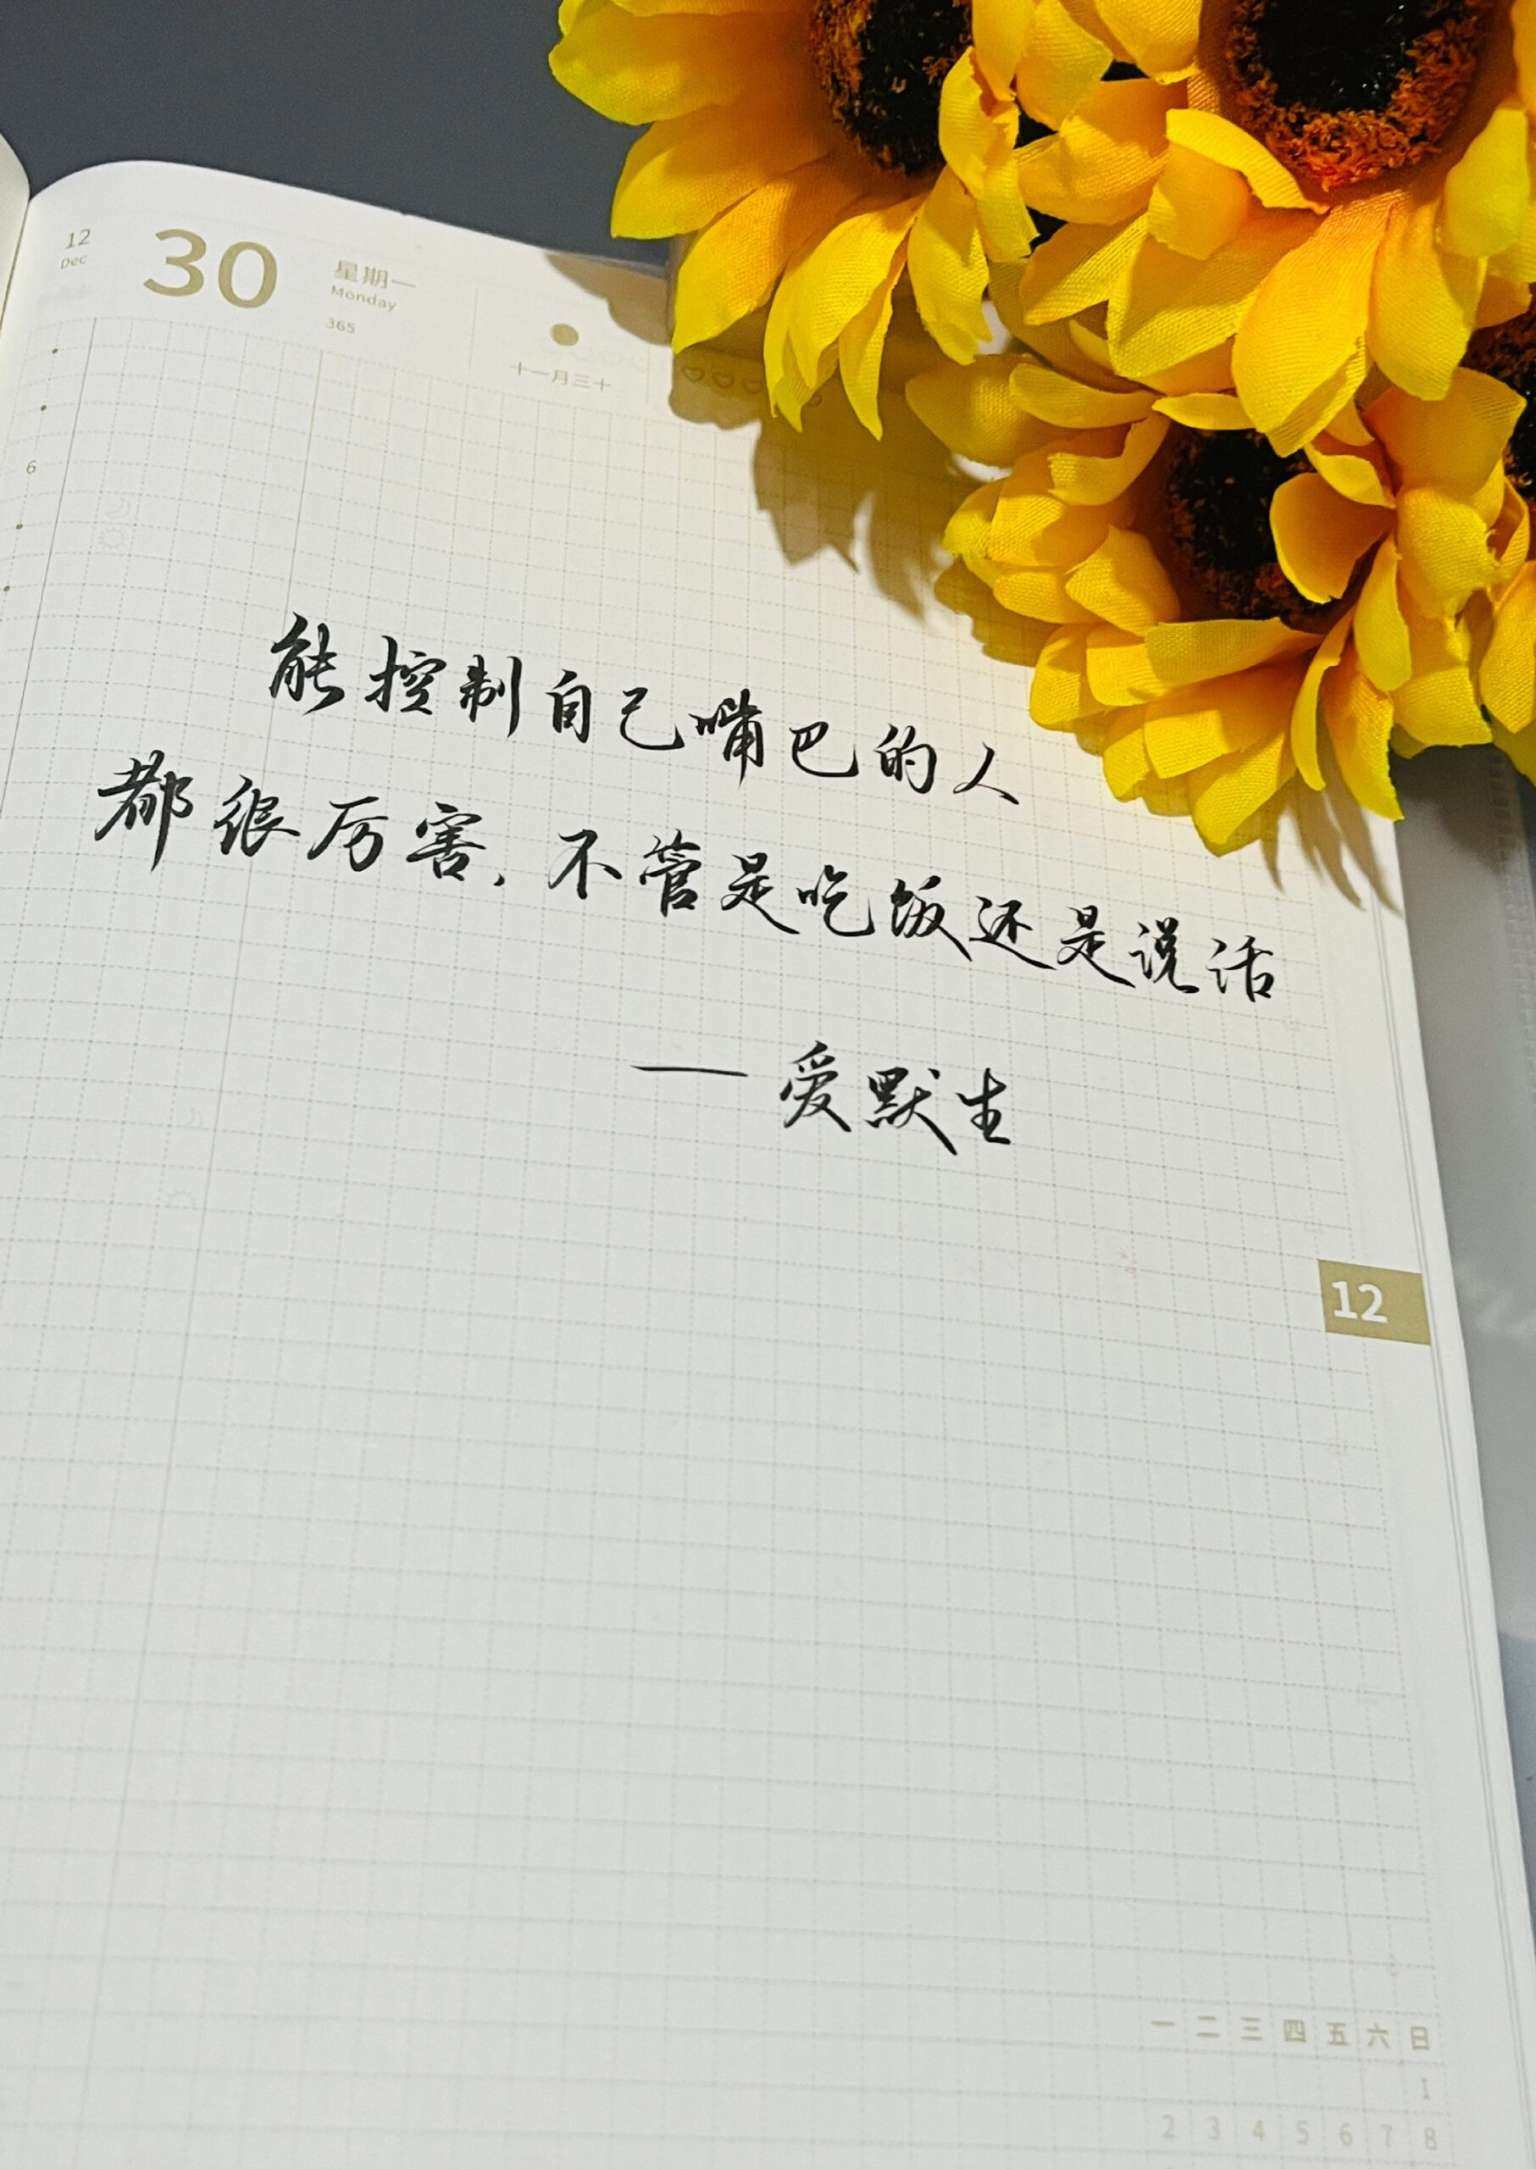 12
Dec
30
星期一
Monday
365
十一月三十
6
能控制自己嘴巴的人
都很厉害,不管是吃饭还是说话
——爱默生
12
一 二 三 四 五 六 日
1
2 3 4 5 6 7 8